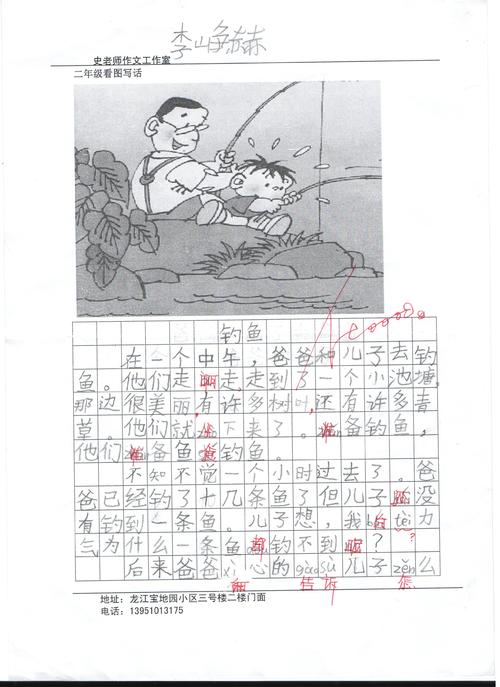 李峥赫
史老师作文工作室
二年级看图写话
钓鱼
在一个中午，爸爸和儿子去钓
鱼。他们走啊走，走到了一个小池塘，
那边很美丽，有许多树叶，还有许多青
草。他们就坐下来了。准备钓鱼，
他们准备鱼钓鱼。
不知不觉一个小时过去了。爸
爸已经钓了十几条鱼了但儿子没
有钓到一条鱼。儿子想，我白tèi力
气为什么一条鱼都钓不到呢？
后来爸爸xì心的gàosu儿子zěn么
耐 告诉 怎
地址：龙江宝地园小区三号楼二楼门面
电话：13951013175